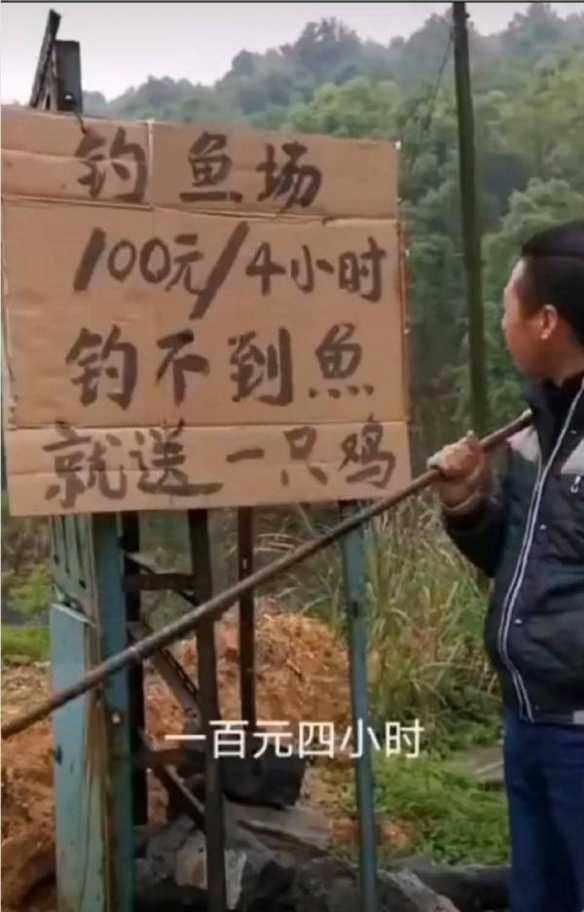 钓鱼场
100元/4小时
钓不到魚
就送一只鸡
一百元四小时